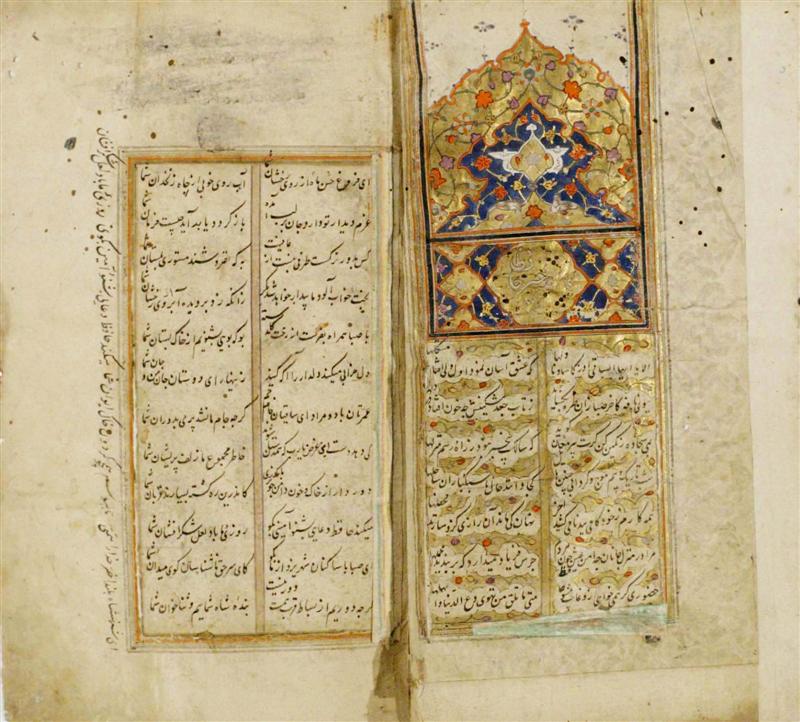 الا یا ایها الساقی ادر کاسا و ناولها که عشق آسان نمود اول ولی افتاد مشکلها
ببوی نافه کاخر صبا زان طره بگشاید ز تاب جعد مشکینش چه خون افتاد در دلها
بمی سجاده رنگین کن گرت پیر مغان گوید که سالک بیخبر نبود ز راه و رسم منزلها
شب تاریک و بیم موج و گردابی چنین هایل کجا دانند حال ما سبکباران ساحلها
همه کارم ز خود کامی ببدنامی کشید آخر نهان کی ماند آن رازی کزو سازند محفلها
مرا در منزل جانان چه امن عیش چون هر دم جرس فریاد میدارد که بربندید محملها
حضوری گر همی خواهی ازو غایب مشو حافظ متی ما تلق من تهوی دع الدنیا و اهملها
ای فروغ حسن ماه از روی رخشان شما آب روی خوبی از چاه زنخدان شما
عزم دیدار تو دارد جان بر لب آمده باز گردد یا بر آید چیست فرمان شما
کس بدور نرگست طرفی نبست از عافیت به که نفروشند مستوری بمستان شما
بخت خواب آلود ما بیدار خواهد شد مگر زانکه زد بر دیده آب روی رخشان شما
با صبا همراه بفرست از رخت گلدسته بو که بویی بشنویم از خاک بستان شما
دل خرابی میکند دلدار را آگه کنید زنهار ای دوستان جان من و جان شما
عمرتان باد و مراد ای ساقیان بزم جم گرچه جام ما نشد پر می بدوران شما
کی دهد دست این غرض یارب که همدستان شوند خاطر مجموع ما زلف پریشان شما
دور دار از خاک و خون دامن چو بر ما بگذری کاندرین ره کشته بسیارند قربان شما
میکند حافظ دعایی بشنو آمینی بگو روزی ما باد لعل شکر افشان شما
ای صبا با ساکنان شهر یزد از ما بگو کای سر حق ناشناسان گوی میدان شما
گرچه دوریم از بساط قرب همت دور نیست بنده شاه شماییم و ثناخوان شما
ای شهنشاه بلند اختر خدا را همتی تا ببوسم همچو گردون خاک ایوان شما میکند حافظ دعایی بشنو آمین بگو روزی ما باد لعل شکر افشان